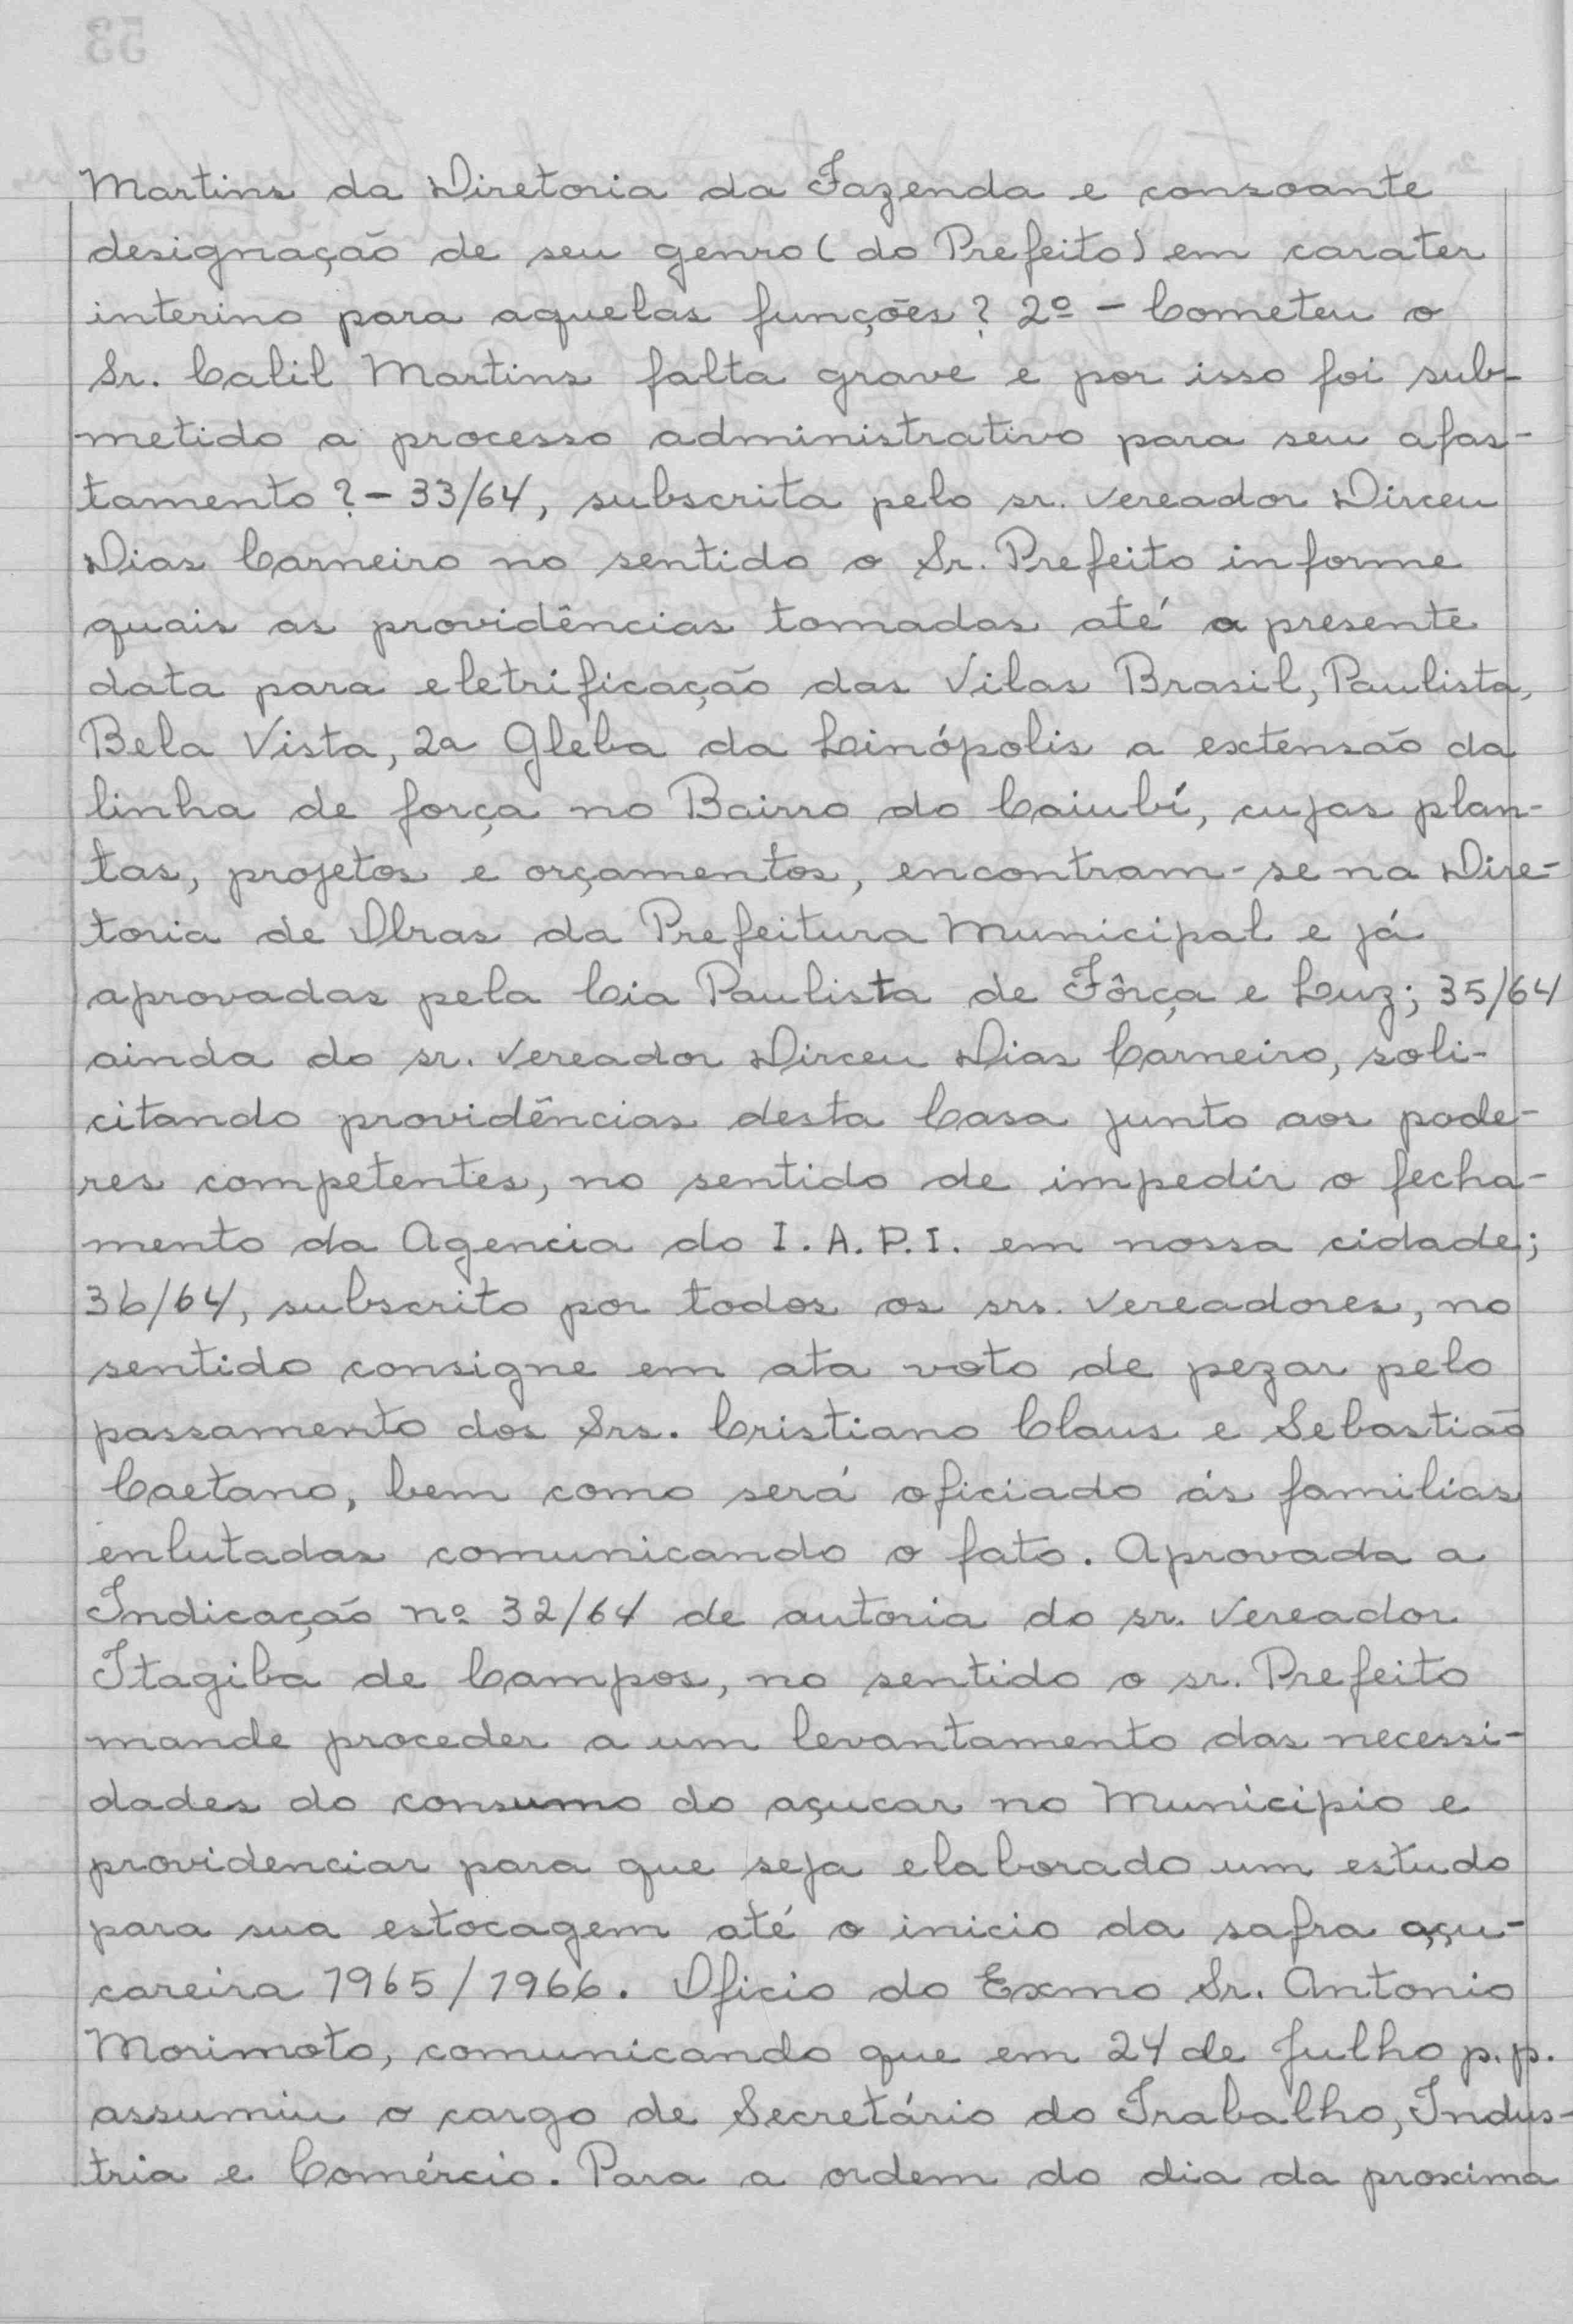 Martins da Diretoria da Fazenda e consoante
designação de seu genro (do Prefeito) em carater
interino para aquelas funções? 2º - Cometeu o
Sr. Calil Martins falta grave e por isso foi sub-
metido a processo administrativo para seu afas-
tamento? - 33/64, subscrita pelo sr. vereador Dirceu
Dias Carneiro no sentido o Sr. Prefeito informe
quais as providências tomadas até a presente
data para eletrificação das Vilas Brasil, Paulista,
Bela Vista, 2a Gleba da Linópolis a extensão da
linha de força no Bairro do Caiubí, cujas plan-
tas, projetos e orçamentos, encontram-se na Dire-
toria de Obras da Prefeitura Municipal e já
aprovadas pela Cia Paulista de Fôrça e Luz; 35/64
ainda do sr. vereador Dirceu Dias Carneiro, soli-
citando providências desta Casa junto aos pode-
res competentes, no sentido de impedir o fecha-
mento da Agencia do I.A.P.I. em nossa cidade;
36/64, subscrito por todos os srs. vereadores, no
sentido consigne em ata voto de pezar pelo
passamento dos Srs. Cristiano Claus e Sebastião
Caetano, bem como será oficiado ás familias
enlutadas comunicando o fato. Aprovada a
Indicação nº 32/64 de autoria do sr. vereador
Itagiba de Campos, no sentido o sr. Prefeito
mande proceder a um levantamento das necessi-
dades do consumo do açucar no Municipio e
providenciar para que seja elaborado um estudo
para sua estocagem até o inicio da safra açu-
careira 1965/1966. Oficio do Exmo Sr. Antonio
Morimoto, comunicando que em 24 de Julho p.p.
assumiu o cargo de Secretário do Trabalho, Indus-
tria e Comércio. Para a ordem do dia da proxima